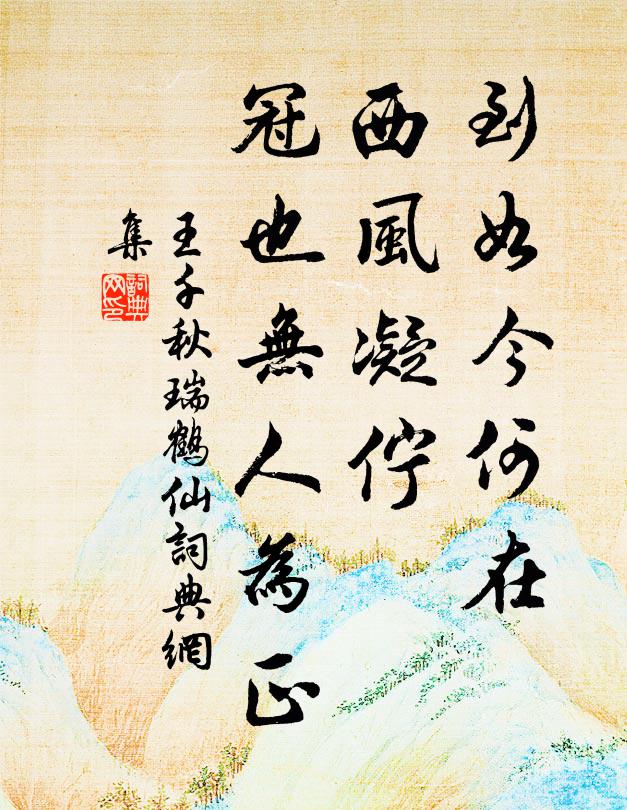 到如今何在
西風凝佇
冠也無人為正
王千秋瑞鶴仙詞典網
集
詞典
网印